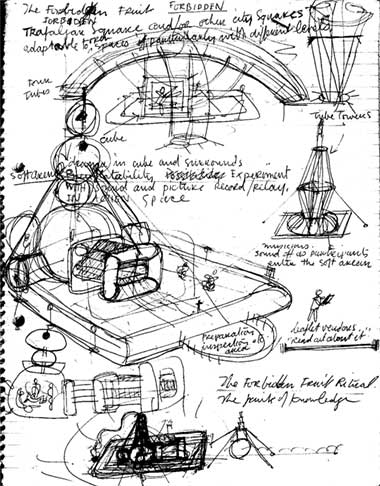 The Forbidden Fruit FORBIDDEN
FORBIDDEN
Trafalgar Square and/or other city squares
adaptable to spaces of particularly with different levels
Tower
Tubes
cube
Tube Towers
in cube and surrounds
Soft Arena Experiment
WITH sound and picture Record/relay.
IN Space
musicians.
sound as participants
enter the soft arena
preparation
inspection
area
leaflet vendors
"Read all about it"
The Forbidden Fruit Ritual.
The fruits of knowledge